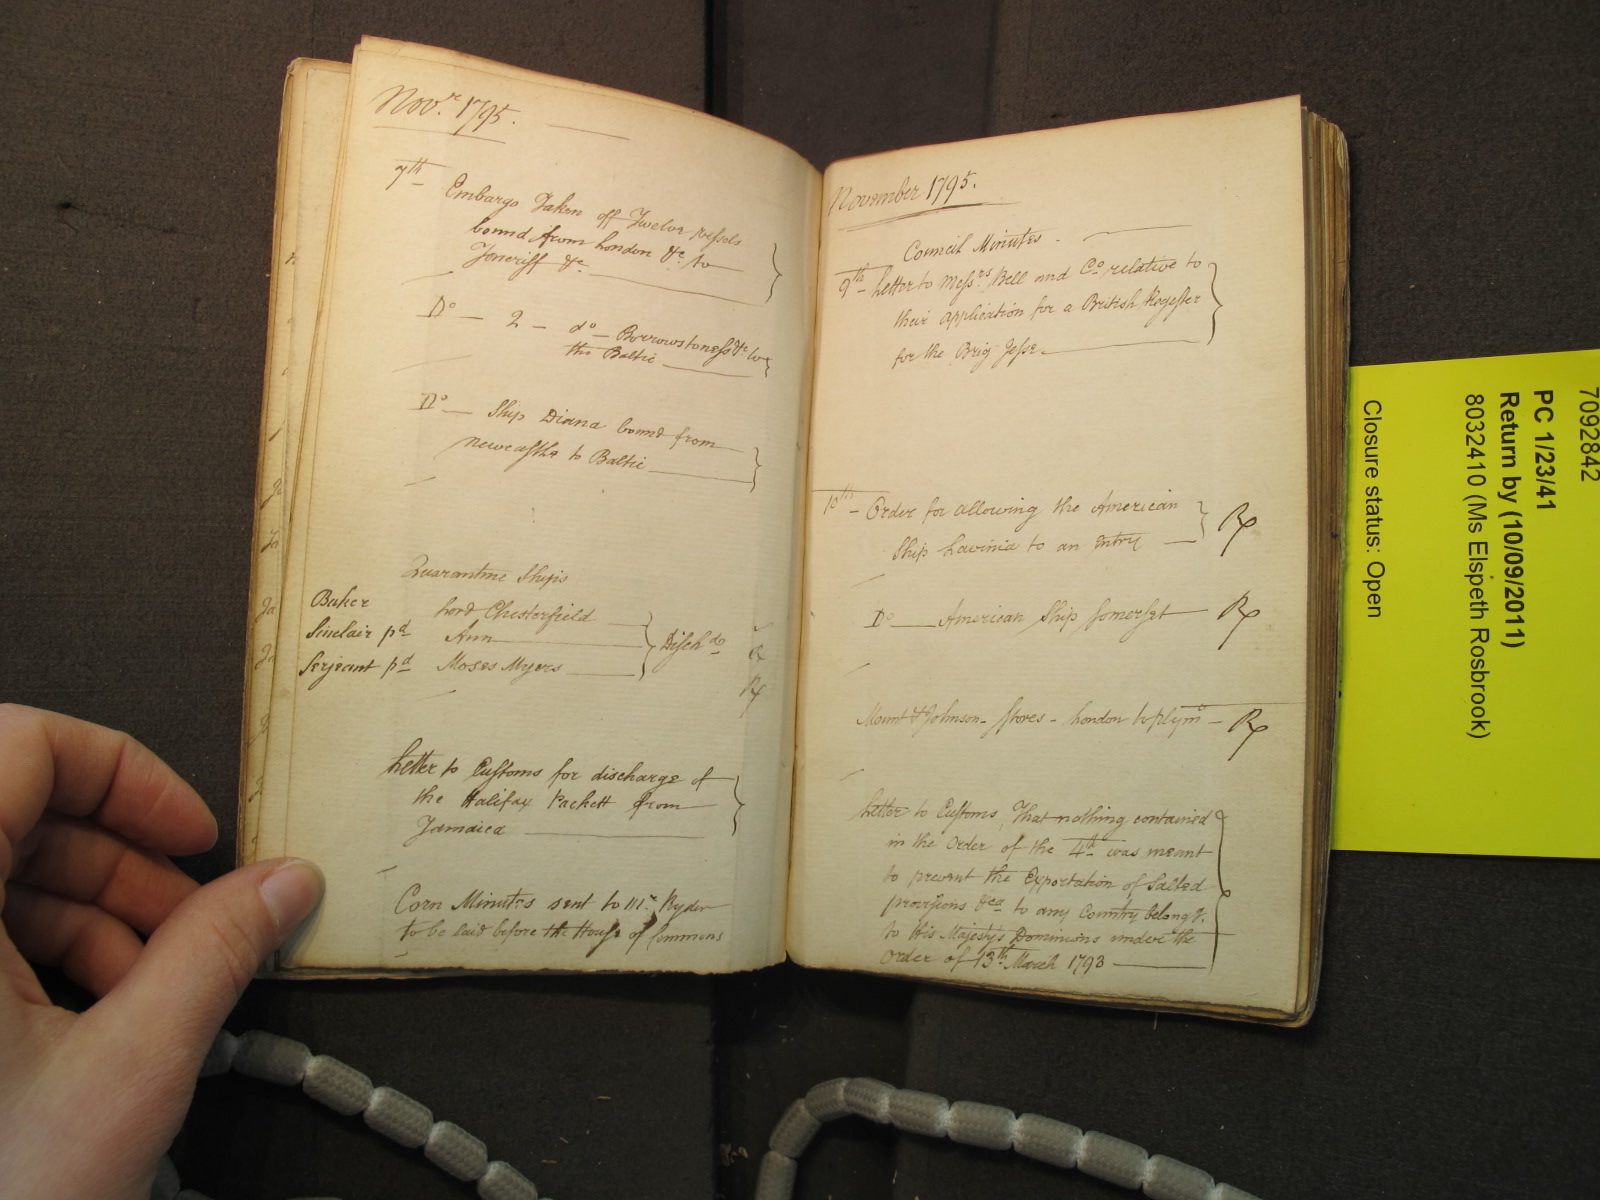 Novr. 1795.
7th
Embargo Taken off Twelve vessels
bound from London &c. to
Teneriff &c.
Do - 2 - do - Borrowstoness &c to
the Baltic
Do - Ship Diana bound from
newcastle to Baltic
Quarantine Ships
Baker Lord Chesterfield
Sinclair pd Ann Dischd
Serjeant pd Moses Myers
Letter to Customs for discharge of
the Halifax Packett from
Jamaica
Corn Minutes sent to Mr. Ryder
to be laid before the House of Commons
November 1795.
Council Minutes.
9th - Letter to Messrs Bell and Co relative to
their application for a British Register
for the Brig Jesse
10th - Order for allowing the American Rx
Ship Lavinia to an Entry
Do American Ship Somerset Rx
Mount & Johnson - Stores - London to plymo - Rx
Letter to Customs, That nothing contained
in the Order of the 4th was meant
to prevent the Exportation of Salted
provisions &ca to any Country belongg.
to His Majesty's Dominions under the
Order of 13th March 1793
7092842
PC 1/23/41
Return by (10/09/2011)
8032410 (Ms Elspeth Rosbrook)
Closure status: Open